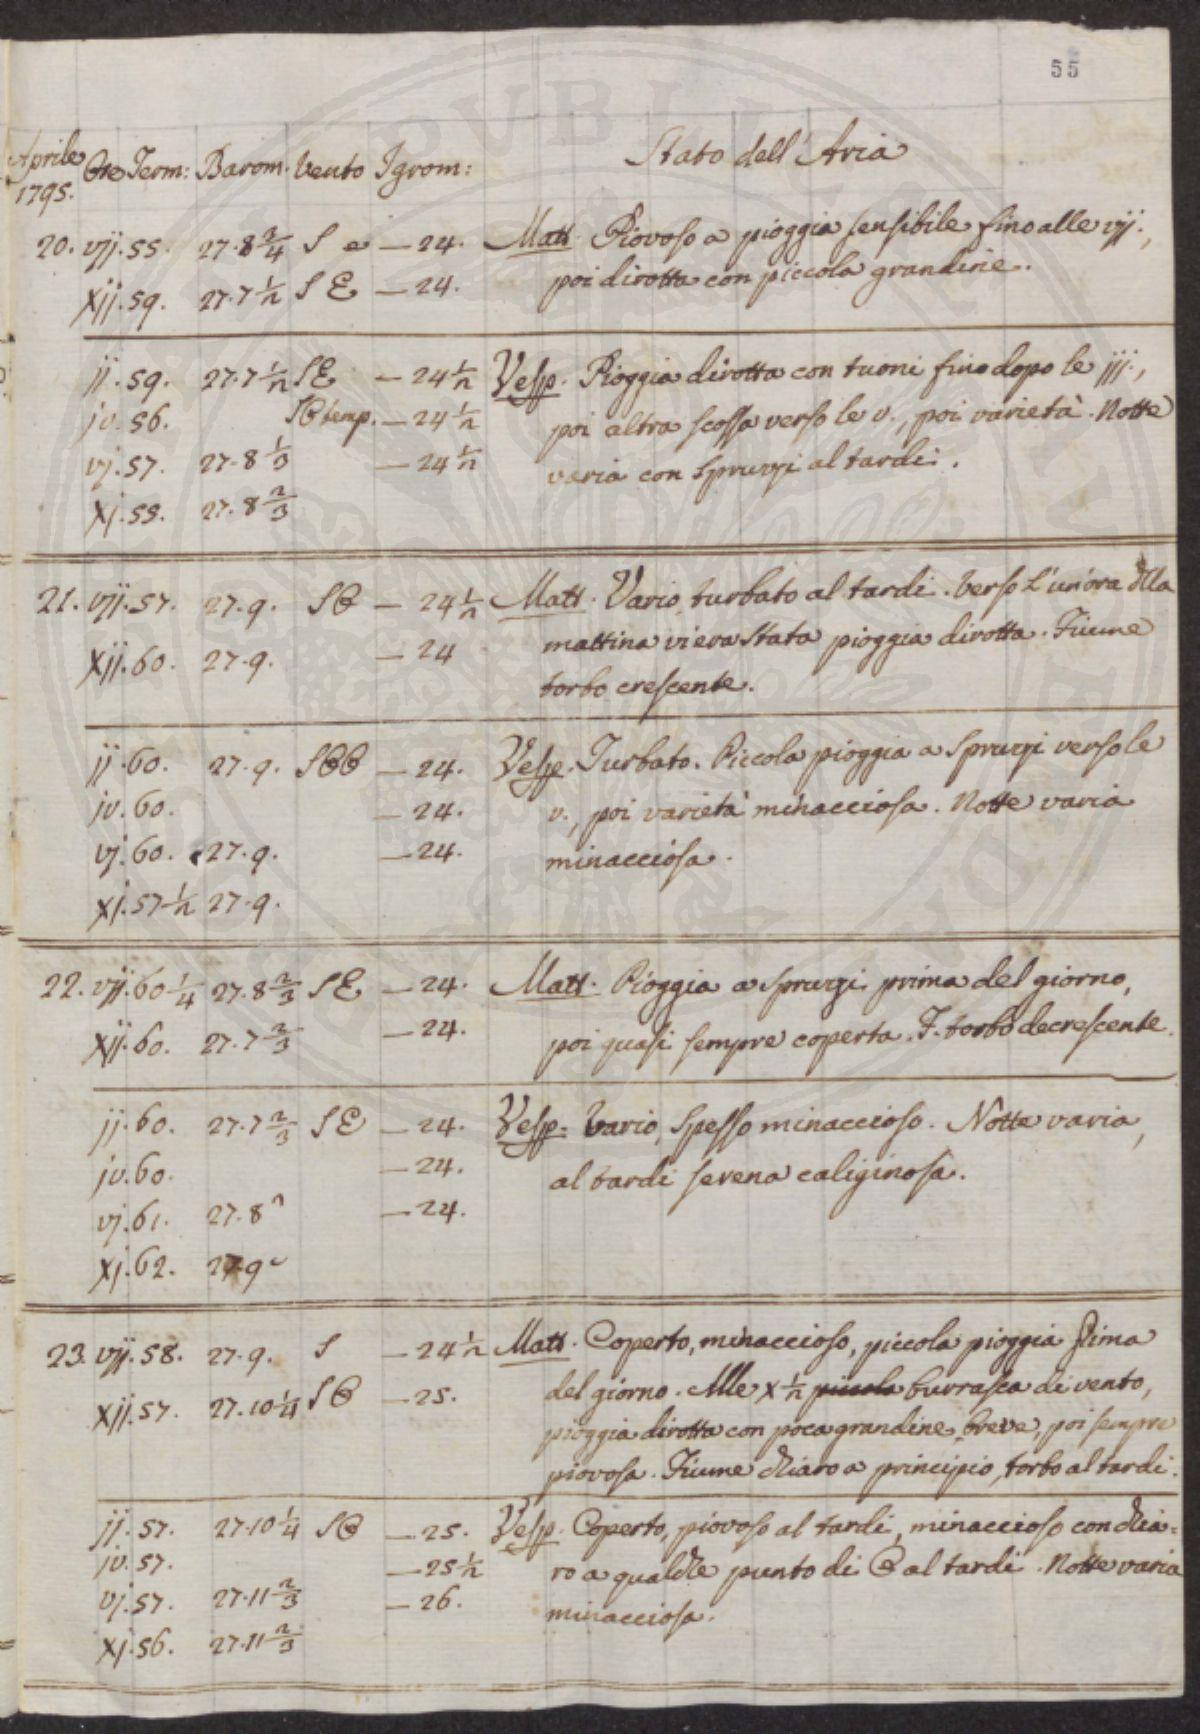 55
Aprile 1795. Ore Term: Barom. Vento Igrom: Stato dell'Aria
20. vij. 55. 27. 8 2/4 S e — 24. Matt. Piovoso a pioggia sensibile fino alle vij.,
xij. 59. 27. 7 1/2 S E — 24. poi dirotta con piccola grandine.
ij. 59. 27. 7 1/2 S E — 24 1/2 Vesp. Pioggia dirotta con tuoni fino dopo le iij.,
iv. 56. temp. — 24 1/2 poi altra scossa verso le v., poi varietà. Notte
vj. 57. 27. 8 1/3 — 24 1/2 varia con spruzzi al tardi.
xj. 55. 27. 8 2/3
21. vij. 57. 27. 9. SO — 24 1/2 Matt. Vario, turbato al tardi. Verso l'un'ora della
xij. 60. 27. 9. — 24 mattina viera stata pioggia dirotta. Fiume
torbo crescente.
ij. 60. 27. 9. SOO — 24. Vesp. Turbato. Piccola pioggia a spruzzi verso le
iv. 60. — 24. v., poi varietà minacciosa. Notte varia
vj. 60. 27. 9. — 24. minacciosa.
xj. 57 1/2 27. 9.
22. vij. 60 1/4 27. 8 2/3 S E — 24. Matt. Pioggia a spruzzi prima del giorno,
xij. 60. 27. 7 2/3 — 24. poi quasi sempre coperta. F. torbo decrescente.
ij. 60. 27. 7 2/3 S E — 24. Vesp. Vario, spesso minaccioso. Notte varia,
iv. 60. — 24. al tardi serena caliginosa.
vj. 61. 27. 8 — 24.
xj. 62. 27. 9
23. vij. 58. 27. 9. S — 24 1/2 Matt. Coperto, minaccioso, piccola pioggia prima
xij. 57. 27. 10 1/4 SO — 25. del giorno. Alle x 1/2 piccola burrasca di vento,
pioggia dirotta con poca grandine, breve, poi sempre
piovosa. Fiume chiaro a principio, torbo al tardi.
ij. 57. 27. 10 1/4 SO — 25. Vesp. Coperto, piovoso al tardi, minaccioso con chia=
iv. 57. — 25 1/2 ro a qualche punto di O al tardi. Notte varia
vj. 57. 27. 11 2/3 — 26. minacciosa.
xj. 56. 27. 11 2/3